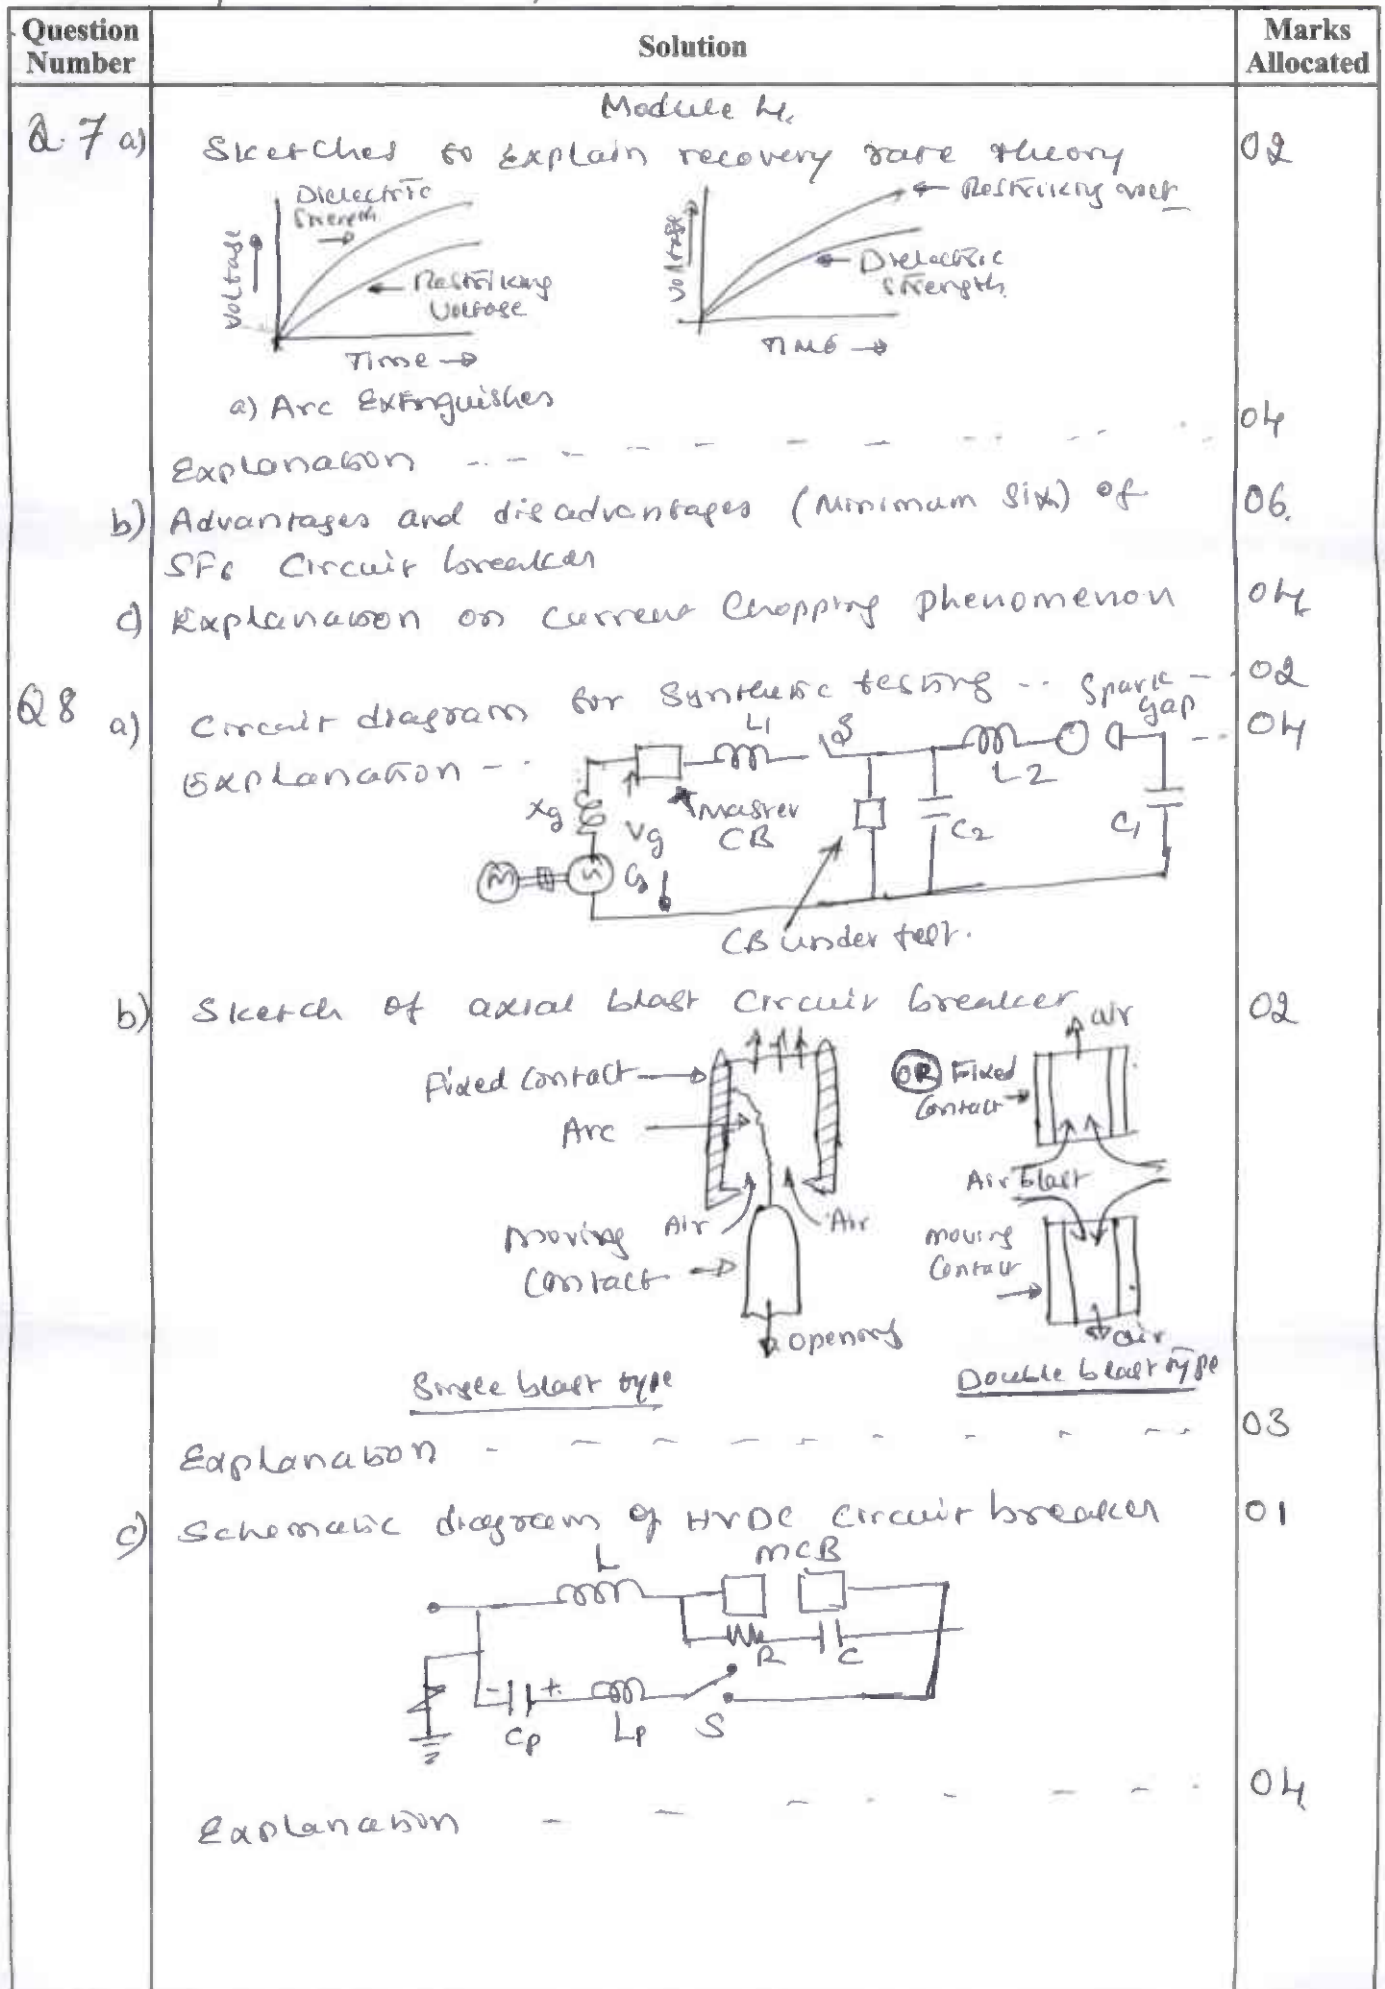 Question Number
Solution
Marks Allocated
Module 4.
Q.7 a) Sketches to Explain recovery rate theory 02
Dielectric Strength
Restriking Voltage
Voltage
Time
Restriking volt
Dielectric strength
Voltage
TIME
a) Arc Extinguishes
Explanation 04
b) Advantages and disadvantages (Minimum Six) of 06.
SF6 Circuit breaker
c) Explanation on Current Chopping phenomenon 04
Q8 a) Circuit diagram for Synthetic testing -- 02
Explanation -- 04
Spark gap
L1
S
L2
Xg
Vg
Master CB
C2
C1
M
G
CB under test.
b) Sketch of axial blast Circuit breaker 02
Fixed Contact
Arc
Air
Air
Moving Contact
Opening
Single blast type
OR
Fixed Contact
air
Air blast
moving Contact
air
Double blast type
Explanation - 03
c) Schematic diagram of HVDC Circuit breaker 01
L
MCB
R
C
- +
Cp
Lp
S
Explanation - 04